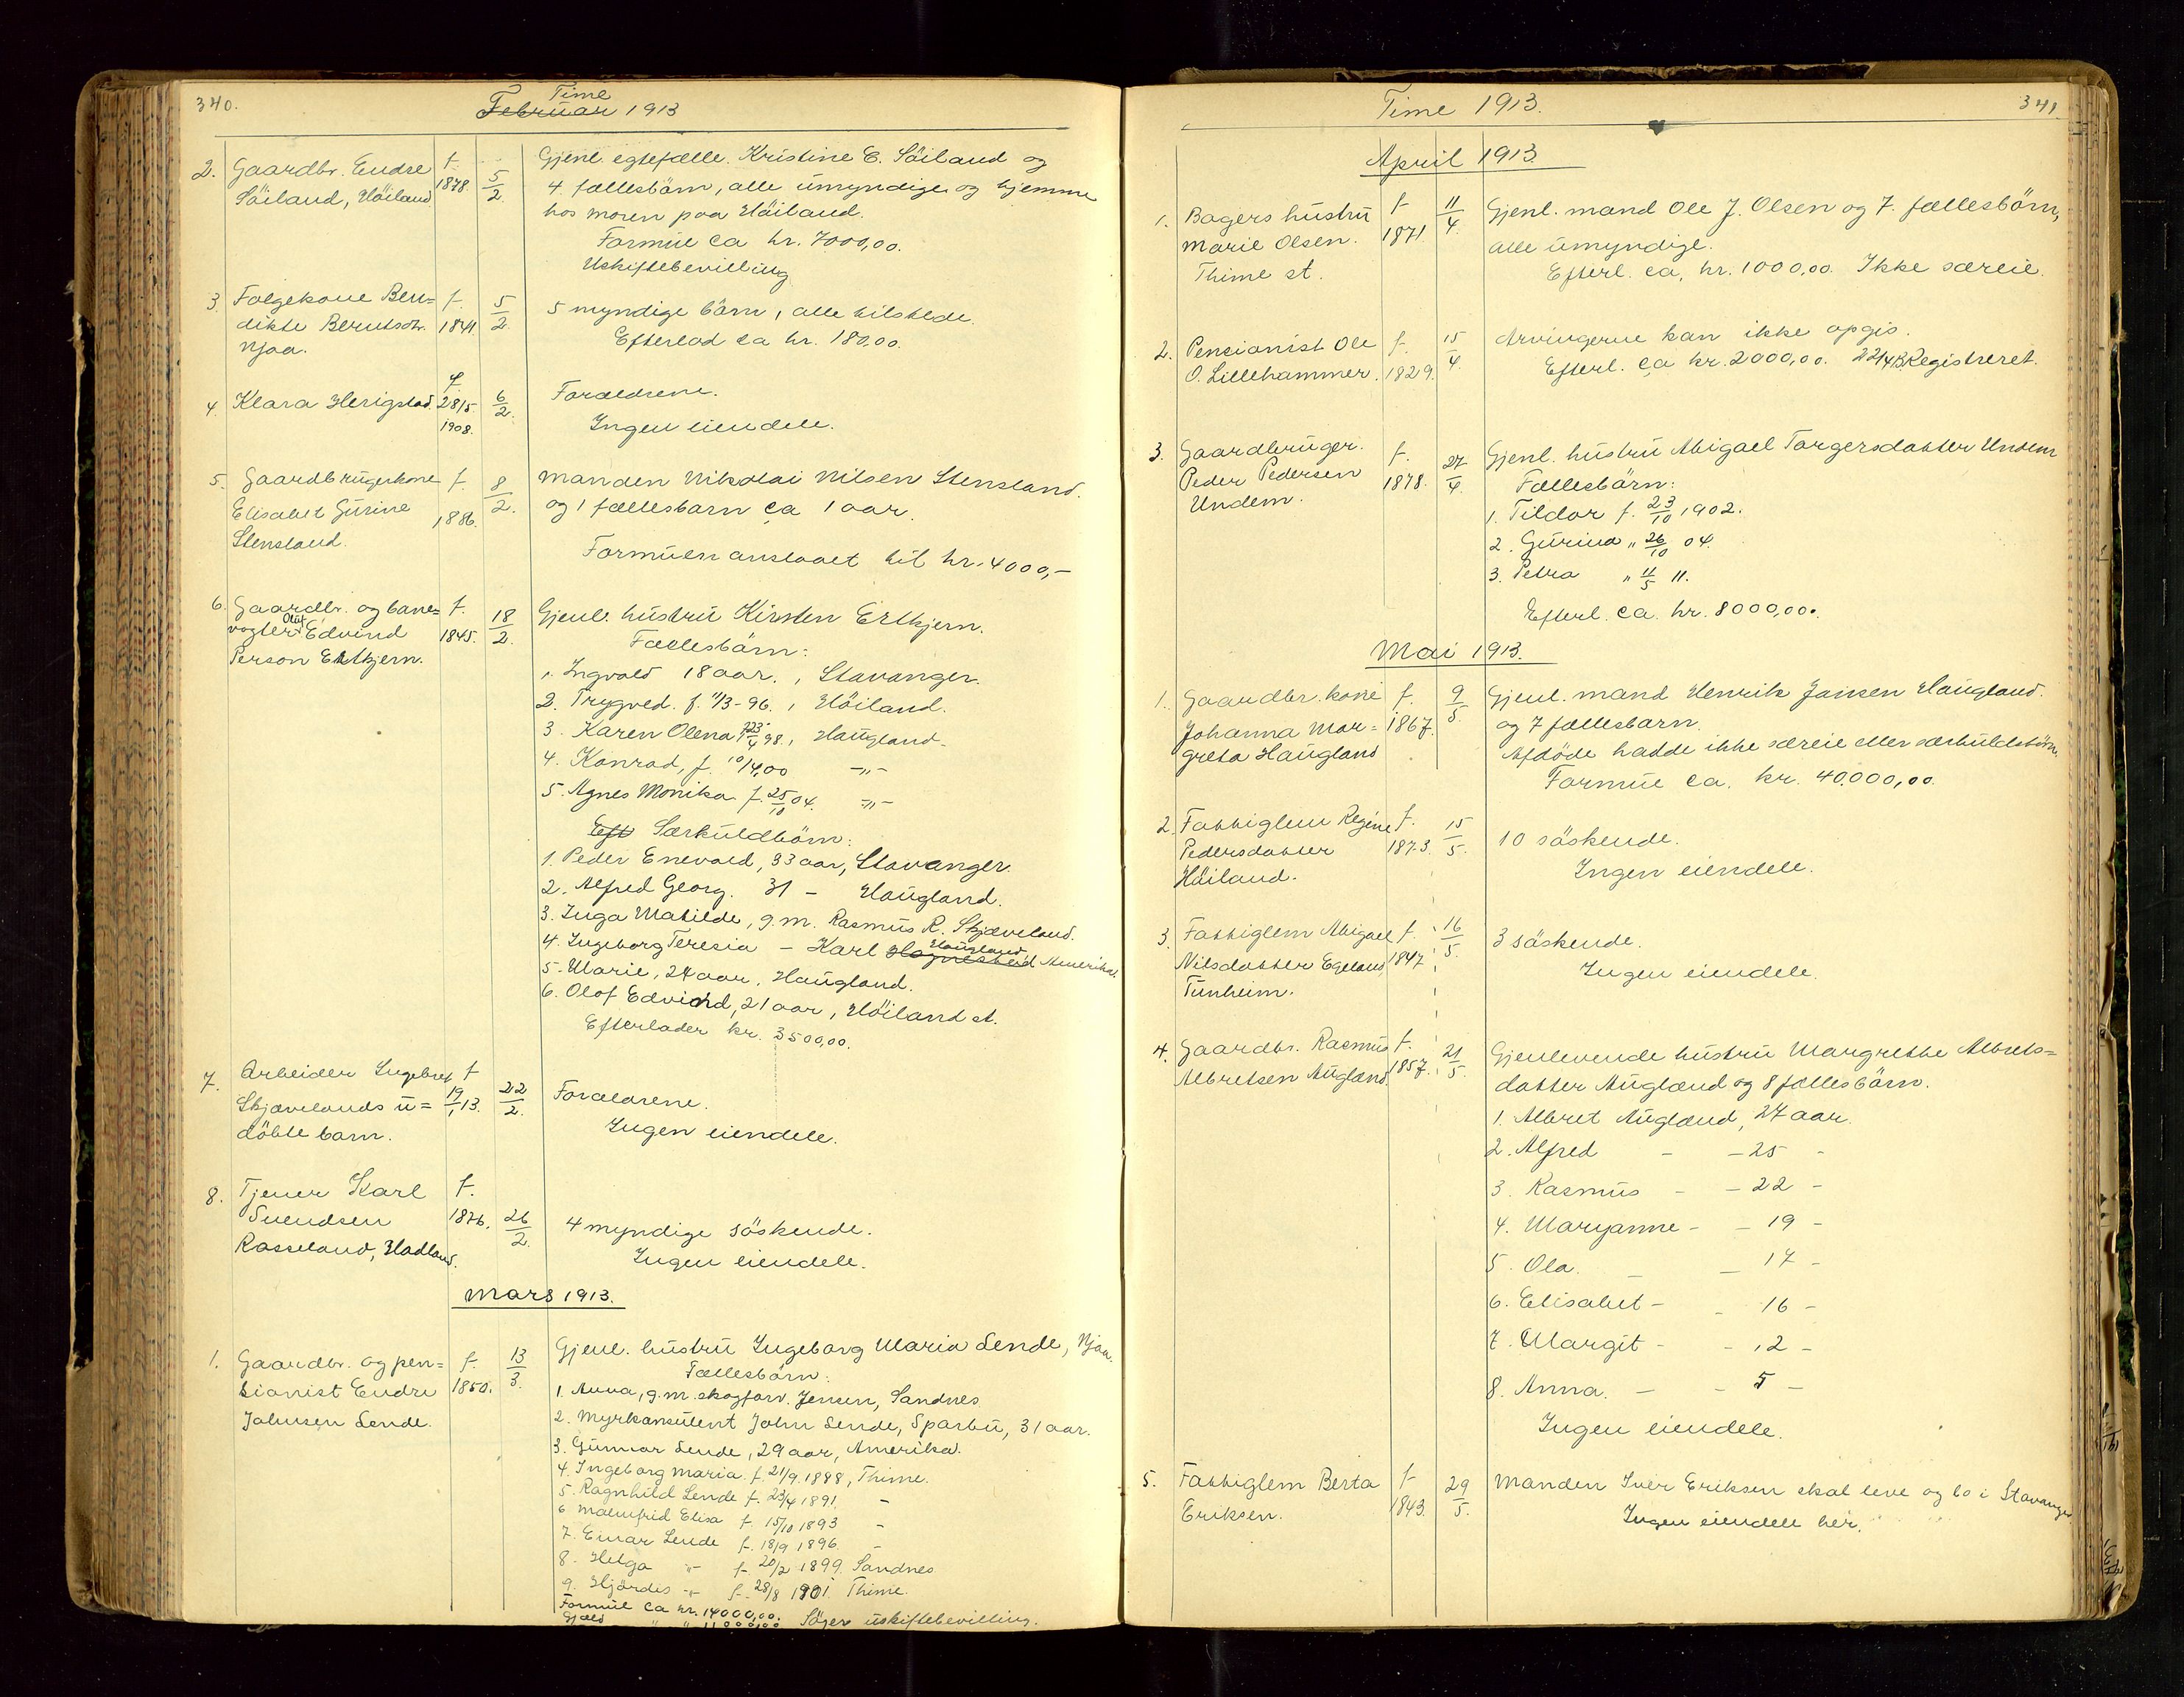 340.
Time
Februar 1913
2. Gaardbr. Endre f. 5/2 Gjenl. egtefælle. Kristine E. Söiland og
Söiland, Höiland 1878. 4 fællesbörn, alle umyndige og hjemme
hos moren paa Höiland.
Formue ca kr. 7000,00.
Uskiftebevilling
3. Folgekone Ben= f. 5/2 5 myndige börn, alle tilstede.
dikte Berntsdtr. 1841 Efterlod ca kr. 180,00.
Njaa.
4. Klara Herigstad. f. 28/5 1908. 6/2 Forældrene.
Ingen eiendele.
5. Gaardbrugerkone f. 8/2. Manden Nikolai Nilsen Stensland.
Elisabet Gurine 1886. og 1 fællesbarn ca 1 aar.
Stensland.
Formuen anslaaet til kr. 4000,-
6. Gaardbr. og bane= f. 18/2. Gjenl. hustru Kirsten Ertkjern.
vogter Oluf Edvind 1845. Fællesbörn:
Person Ertkjern.
1. Ingvald 18 aar. , Stavanger.
2. Trygved. f. 11/3-96. , Höiland.
3. Karen Olena f. 23/4 98., Haugland.
4. Konrad, f. 10/4,00 -"-
5. Agnes Monika f. 25/10 04. -"-
Eft Særkuldbörn:
1. Peder Enevald, 33 aar, Stavanger.
2. Alfred Georg. 31 - Haugland.
3. Inga Matilde, g. m. Rasmus R. Skjæveland.
4. Ingeborg Teresia - Karl Haugland, Amerika.
5. Marie, 24 aar, Haugland.
6. Olof Edvind, 21 aar, Höiland st.
Efterlader kr. 3500,00.
7. Arbeider Ingebret f. 22/2. Forældrene.
Skjævelands u= 19/1 13. Ingen eiendele.
döbte barn.
8. Tjener Karl f.
Svendsen 1876. 26/2. 4 myndige söskende.
Rasseland, Hadland. Ingen eiendele.
Mars 1913.
1. Gaardbr. og pen= f. 13/3. Gjenl. hustru Ingeborg Maria Lende, Njaa.
sionist Endre 1850. Fællesbörn:
Johnsen Lende.
1. Anna, g. m. skogforv. Jensen, Sandnes
2. Myrkonsulent John Lende, Sparbu, 31 aar.
3. Gunnar Lende, 29 aar, Amerika.
4. Ingeborg Maria f. 21/9. 1888, Thime.
5. Ragnhild Lende f. 23/4 1891. -
6 Malmfrid Elisa f. 15/10 1893 -
7. Einar Lende f. 18/9 1896. -
8. Helga -"- f. 20/2 1899. Sandnes
9. Hjördis -"- f. 28/8 1901. Thime.
Formue ca kr. 14000,00.
Gjæld " " 11000,00 Söger uskiftebevilling.
Time 1913.
341
April 1913.
1. Bagers hustru f. 11/4. Gjenl. mand Ole J. Olsen og 7. fællesbörn,
Marie Olsen. 1871 alle umyndige.
Thime st. Efterl. ca, kr. 1000,00. Ikke særeie.
2. Pensionist Ole f. 15/4. Arvingerne kan ikke opgis.
O. Lillehammer. 1829. Efterl. ca kr. 2000,00. 22/4 13. Registreret.
3. Gaardbruger. f. 27/4. Gjenl. hustru Abigael Torgersdatter Undem
Peder Pedersen 1878. Fællesbörn:
Undem.
1. Tildor f. 23/10 1902.
2. Gurina " 26/10 04.
3. Petra " 11/5 11.
Efterl. ca. kr. 8000,00.
Mai 1913.
1. Gaardbr. kone f. 9/5. Gjenl. mand Henrik Jansen Haugland.
Johanna Mar= 1867. og 7 fællesbarn.
greta Haugland Afdöde hadde ikke særeie eller særkuldsbörn.
Formue ca. kr. 40.000,00.
2. Fattiglem Regine f. 15/5. 10 söskende.
Pedersdatter 1873. Ingen eiendele.
Höiland.
3. Fattiglem Abigael f. 16/5. 3 söskende.
Nilsdatter Egeland 1847 Ingen eiendele.
Tunheim.
4. Gaardbr. Rasmus f. 21/5. Gjenlevende hustru Margrethe Albrets=
Albretsen Augland. 1857. datter Augland og 8 fællesbörn.
1. Albret Augland, 27 aar.
2. Alfred - - 25 -
3. Rasmus - - 22 -
4. Maryanne - - 19 -
5. Ola. - - 17 -
6. Elisabet - - 16 -
7. Margit - - 12 -
8. Anna. - - 5 -
Ingen eiendele.
5. Fattiglem Berta f. 29/5. Manden Iver Eriksen skal leve og bo i Stavanger
Eriksen. 1843. Ingen eiendele her.